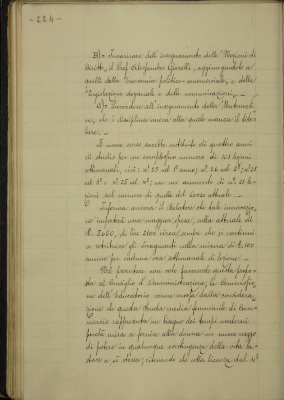 - 224 -
B)= Incaricare dell'insegnamento delle Nozioni di
Diritto, il Prof. Alessandro Garelli, aggiungendolo a
quelli della Economia politico-commerciale, e della
Legislazione doganale e delle comunicazioni.
C)= Provvedere all'insegnamento della Matemati-
ca, che è disciplina nuova alla quale manca il tito-
lare.
Il nuovo corso sarebbe costituito di quattro anni
di studio per un complessivo numero di 103 lezioni
settimanali, cioè: n° 25 nel 1° anno; n° 26 nel 2°; n° 28
nel 3° e n° 25 nel 4°; con un aumento di n° 21 le-
zioni sul numero di quelle del corso attuale.
Informa ancora il Relatore che tale innovazio-
ne importerà una maggior spesa, sulla attuale di
L. 8050, di lire 2100 circa, anche se si continui
a retribuire gli Insegnanti nella misura di L. 100
annue per caduna ora settimanale di lezione.
Nel presentare con voto favorevole questa propo-
sta al Consiglio d'Amministrazione, la Commissio-
ne dell'Educatorio venne mossa dalla considera-
zione che questa Scuola media femminile di Com-
mercio rappresenta un bisogno dei tempi moderni
poiché mira a fornire alla donna un nuovo mezzo
di potere in qualunque contingenza della vita ba-
stare a sé stessa; ritenendo che colla licenza dal 4°